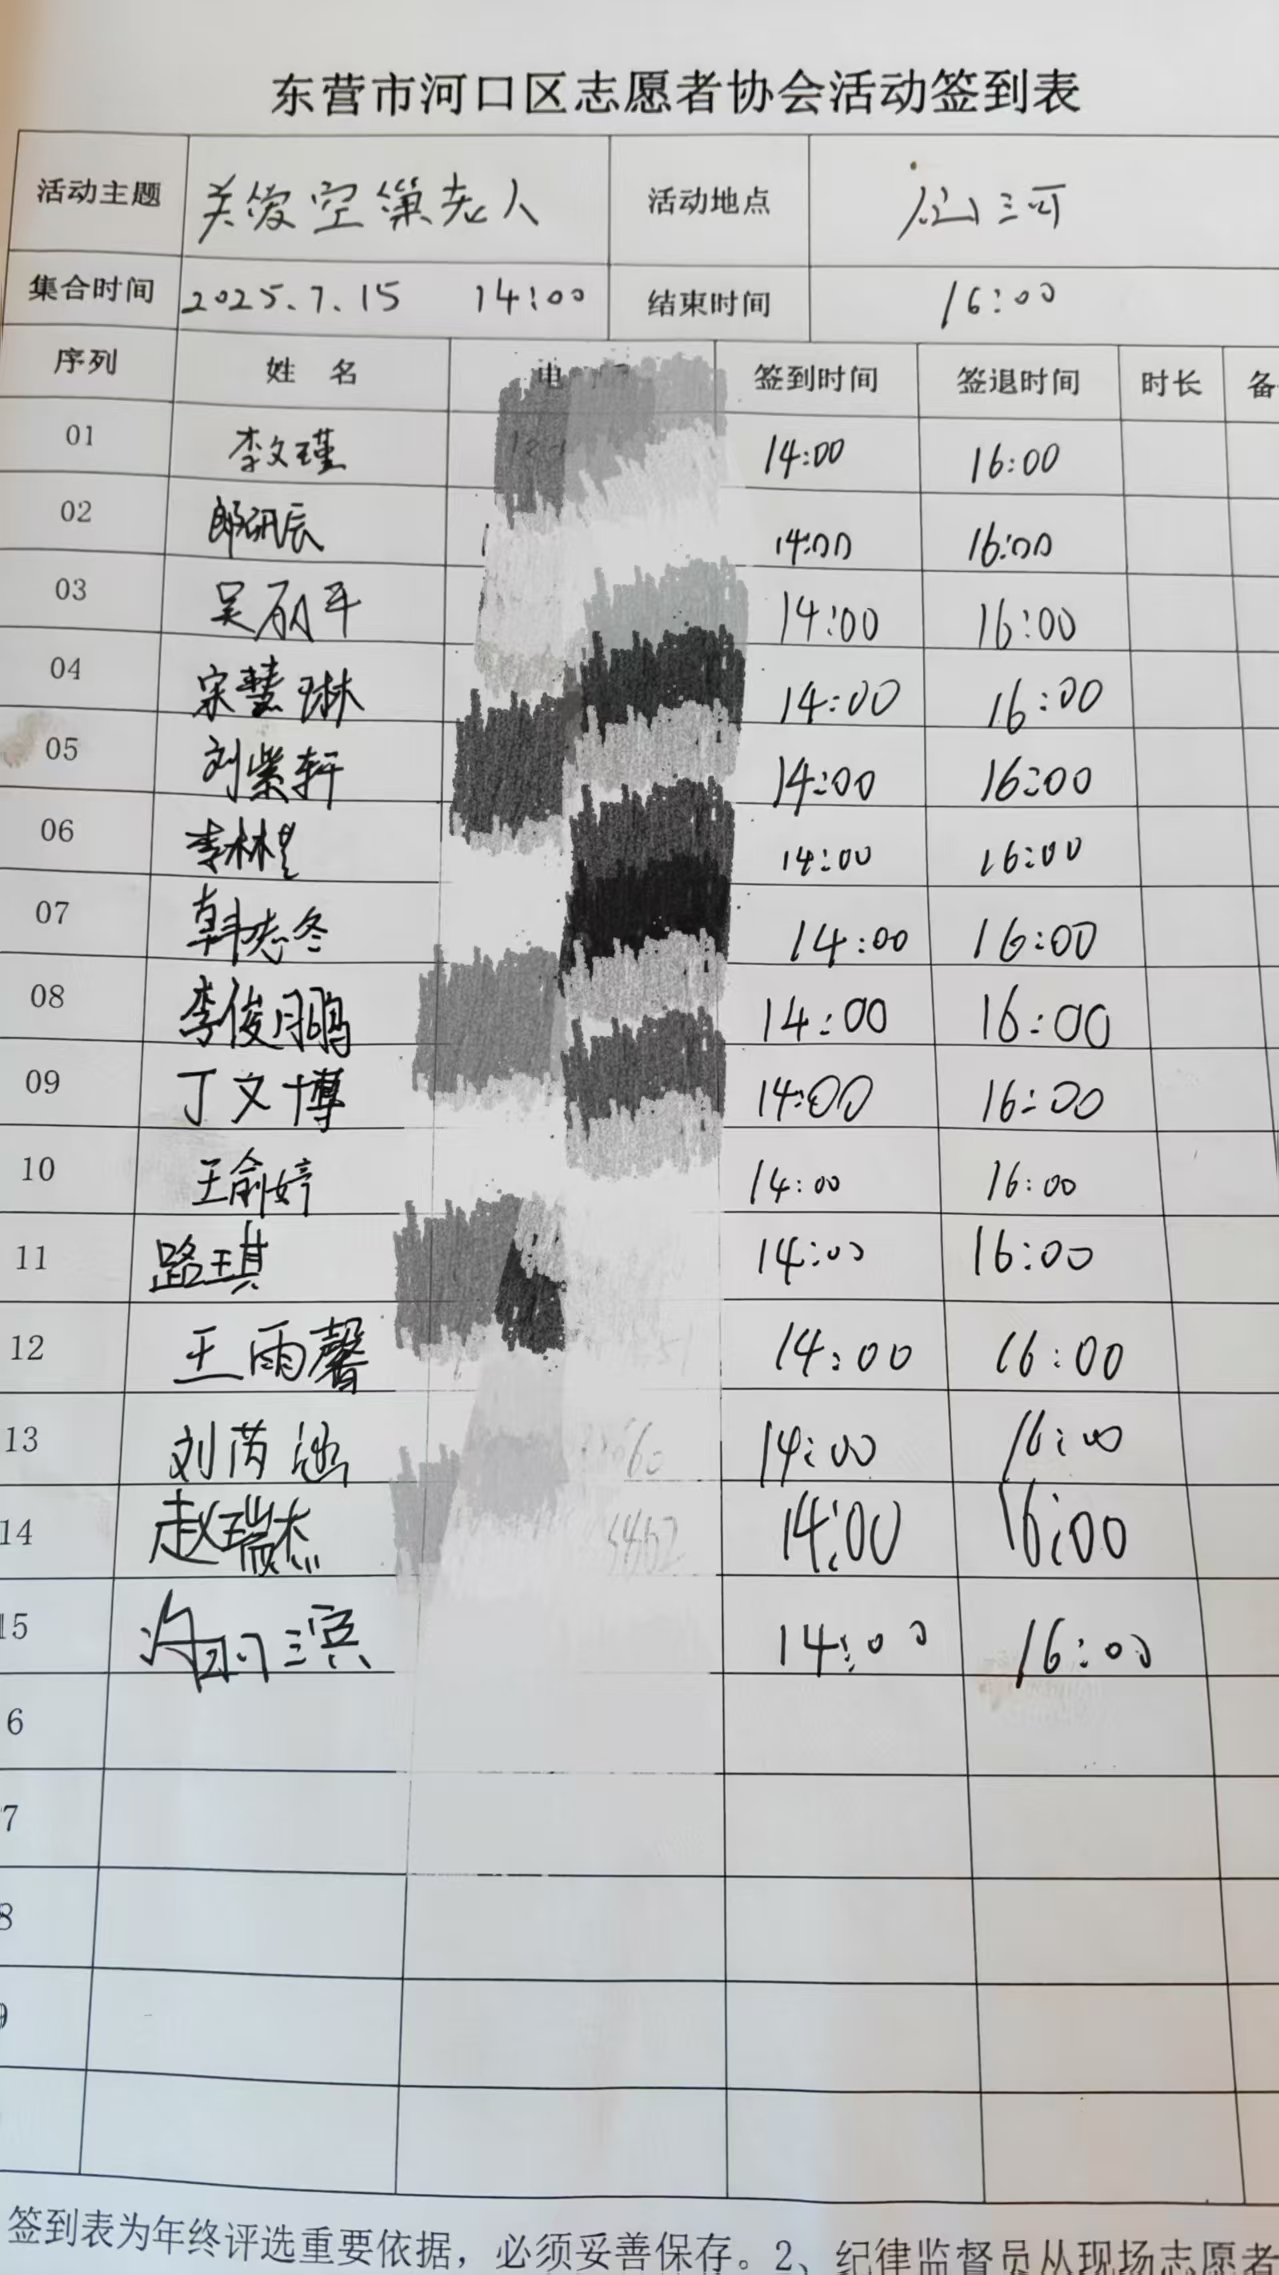 东营市河口区志愿者协会活动签到表
活动主题 关爱空巢老人 活动地点 仙河
集合时间 2025.7.15 14:00 结束时间 16:00
序列 姓 名 电 签到时间 签退时间 时长 备
01 李文瑾 14:00 16:00
02 郎砚辰 14:00 16:00
03 吴丽平 14:00 16:00
04 宋慧琳 14:00 16:00
05 刘紫轩 14:00 16:00
06 李林 14:00 16:00
07 韩志冬 14:00 16:00
08 李俊鹏 14:00 16:00
09 丁文博 14:00 16:00
10 王俞婷 14:00 16:00
11 路琪 14:00 16:00
12 王雨馨 14:00 16:00
13 刘芮涵 14:00 16:00
14 赵瑞杰 14:00 16:00
15 14:00 16:00
6
7
8
9
签到表为年终评选重要依据，必须妥善保存。2、纪律监督员从现场志愿者